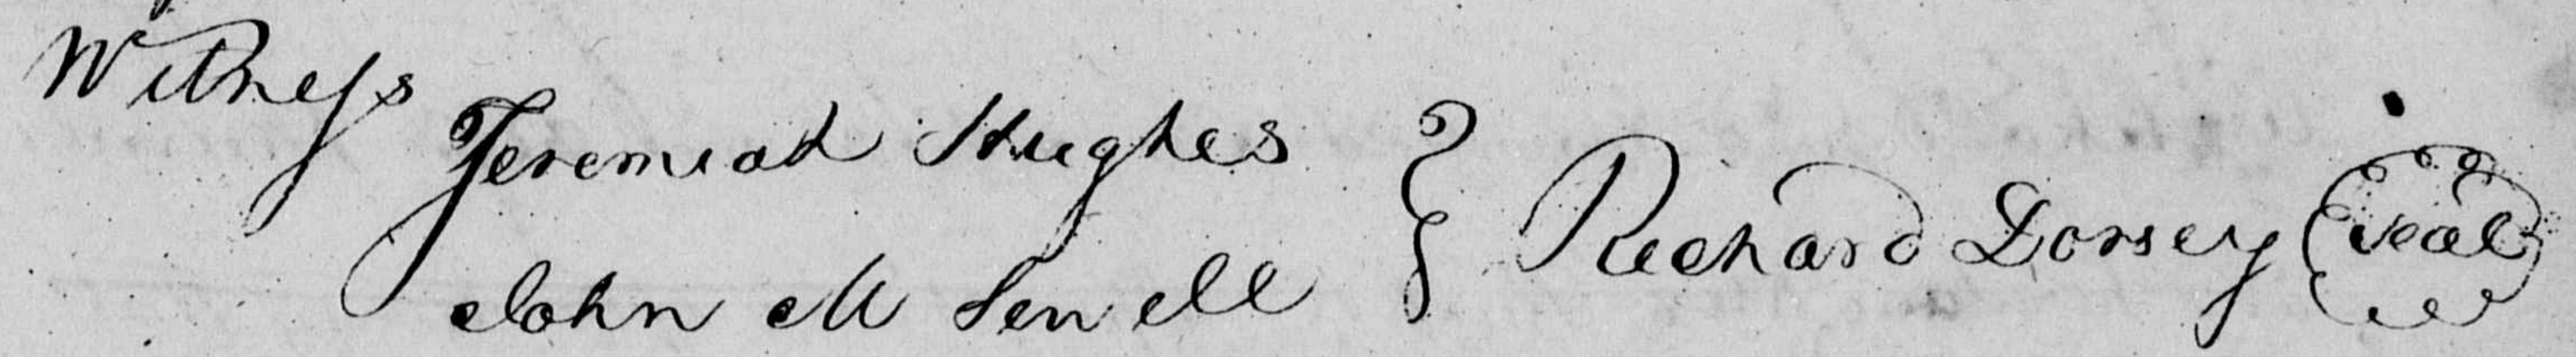 Witness
Jeremiah Hughes
John M Sewell
} Richard Dorsey (seal)